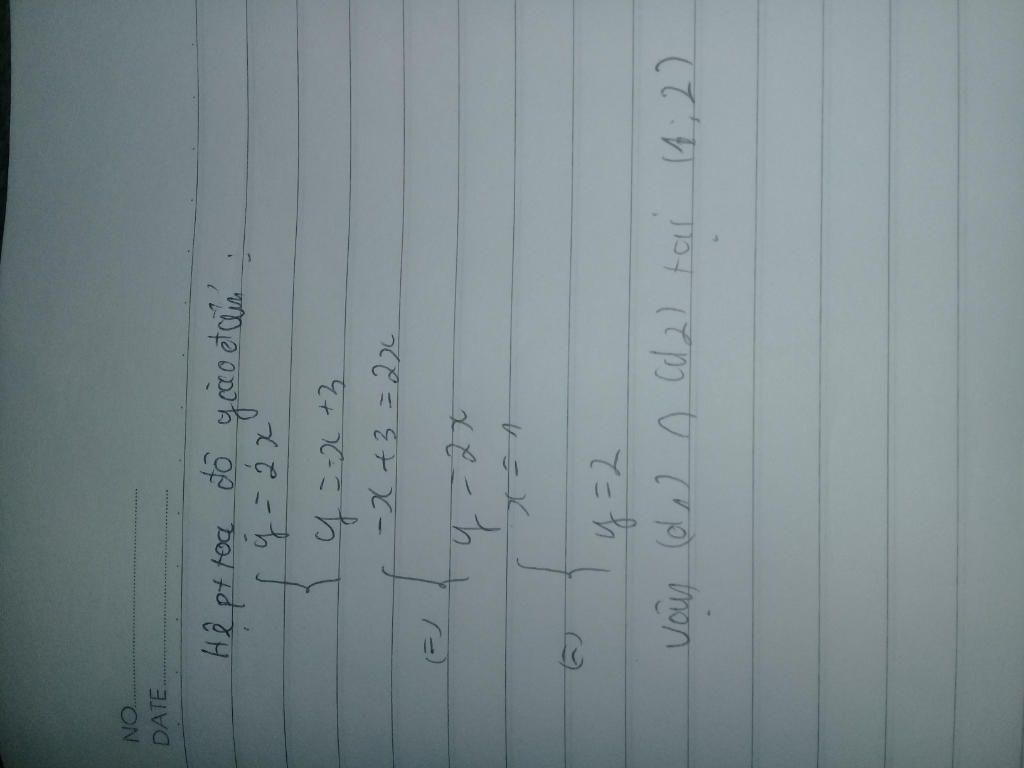 NO.
DATE
Hệ pt toạ độ giao điểm:
{ y = 2x
y = -x + 3
(=) { -x + 3 = 2x
y = 2x
(=) { x = 1
y = 2
Vậy (d1) ∩ (d2) tại (1; 2)